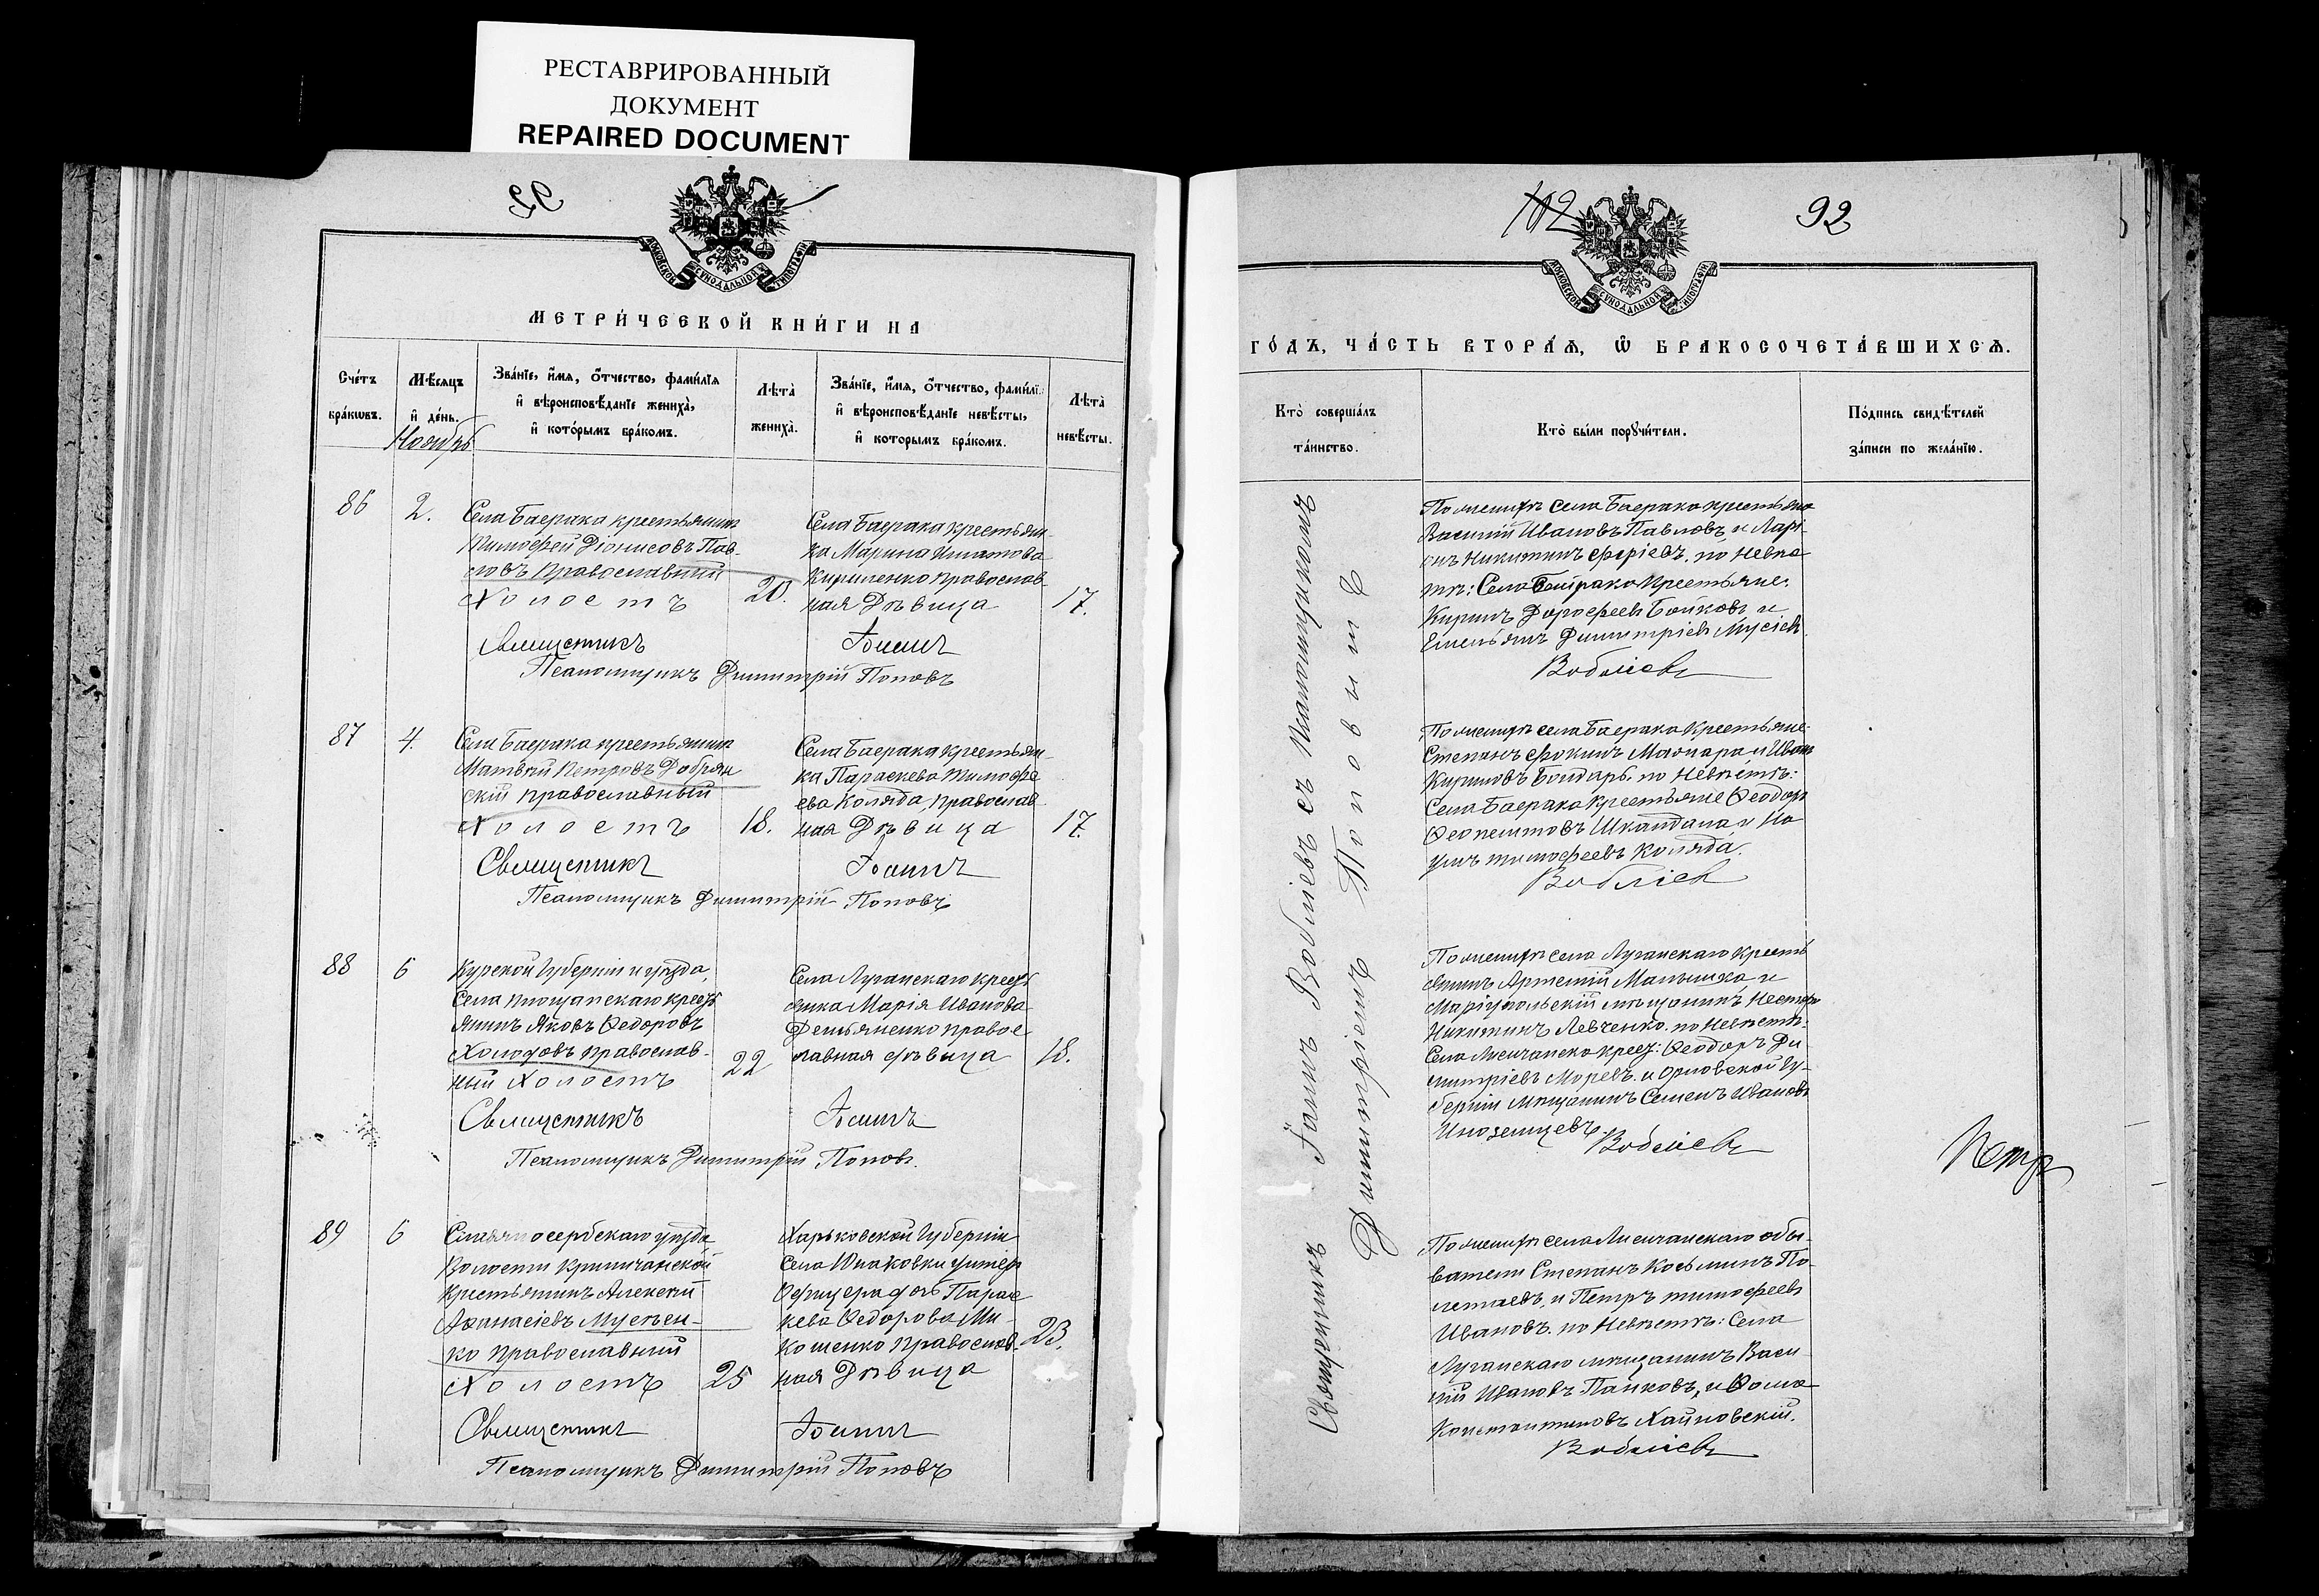 РЕСТАВРИРОВАННЫЙ
ДОКУМЕНТ
REPAIRED DOCUMENT
МОСКОВСКОЙ СѴНОДАЛЬНОЙ ТИПОГРАФІИ
МЕТРИ́ЧЕСКОЙ КНИ́ГИ НА
Сче́тъ бра́кѡвъ.
Мѣ́сяцъ и҆ де́нь.
Ноябрь
Зва́нїе, и҆́мѧ, ѻ҆́тчество, фамѝлїѧ
и҆ вѣроисповѣ́данїе жениха̀,
и҆ кото́рымъ бра́комъ.
Лѣта̀ жениха̀.
Зва́нїе, и҆́мѧ, ѻ҆́тчество, фамѝлї
и҆ вѣроисповѣ́данїе невѣ́сты,
и҆ кото́рымъ бра́комъ.
Лѣта̀ невѣ́сты.
86
2.
Села Баерака крестьянинъ
Тимофей Діонисовъ Пав-
ловъ православный
Холостъ
20.
Села Баерака крестьян-
ка Марина Игнатова
Кириленко православ
ная Дѣвица
17.
Священникъ Іоаннъ
Псаломщикъ Димитрій Поповъ
87
4.
Села Баерака крестьянинъ
Матвѣй Петровъ Добрян
скій православный
Холостъ
18.
Села Баерака крестьян
ка Параскева Тимофе
ева Коляда, православ
ная Дѣвица
17.
Священникъ Іоаннъ
Псаломщикъ Димитрій Поповъ
88
6
Курской Губерніи и уѣзда,
Села крест
янинъ Яковъ Ѳедоровъ
православ-
ный Холостъ
22
Села Луганскаго крест
янка Марія Иванова
Демьяненко правос
лавная дѣвица
18.
Священникъ Іоаннъ
Псаломщикъ Димитрій Поповъ.
89
6
Славяносербскаго уѣзда
Волости Криничанской
Крестьянинъ Алексѣй
Аѳанасіевъ
ко православный
Холостъ
25
Харьковской Губерніи
Села унтеръ
Офицера дочь Парас
кева Ѳедорова Ми-
кошенко православ-
ная Дѣвица
23.
Священникъ Іоаннъ
Псаломщикъ Димитрій Поповъ
102
92
МОСКОВСКОЙ СѴНОДАЛЬНОЙ ТИПОГРАФІИ
ГО́ДЪ, ЧА́СТЬ ВТОРА́Ѧ, Ѽ БРАКОСОЧЕТА́ВШИХСѦ.
Кто̀ соверша́лъ
та́инство.
Кто̀ бы́ли порꙋчи́тели.
По́дпись свидѣ́телей
за́писи по жела́нїю.
Священникъ Іоаннъ Воблiевъ съ псаломщикомъ
Димитріемъ Поповымъ
По женихѣ села Баерака крестьяне
Василій Ивановъ Павловъ, и
Никитинъ по Невѣс
тѣ: Села Баерака крестьяне:
Кириллъ Дорофеевъ Бойковъ и
Емельянъ Димитріевъ Мусіевъ.
Вобліевъ
По женихѣ села Баерака крестьяне:
Степанъ Фокинъ и Иванъ
Кириловъ Бондарь. по Невѣстѣ:
Села Баерака крестьяне Ѳеодоръ
Шкандала и На
умъ Тимофеевъ Коляда.
Вобліев
По женихѣ села Луганскаго кресть
янинъ Артемій и
Маріупольскій мѣщанинъ Несторъ
Никитинъ Левченко. по Невѣстѣ:
Села крест: Ѳеодоръ Ди
митріевъ Моревъ. и Орловской Гу-
берніи мѣщанинъ Семенъ Ивановъ
Иноземцевъ.
Вобліевъ
Петръ
По женихѣ села Лисичанскаго обы-
ватели Степанъ Косьминъ По-
летаевъ, и Петръ Тимофеевъ
Ивановъ. по Невѣстѣ: Села
Луганскаго мѣщанинъ Васи-
лій Ивановъ Панковъ, и Ѳома
Константиновъ Хайновскій.
Вобліевъ